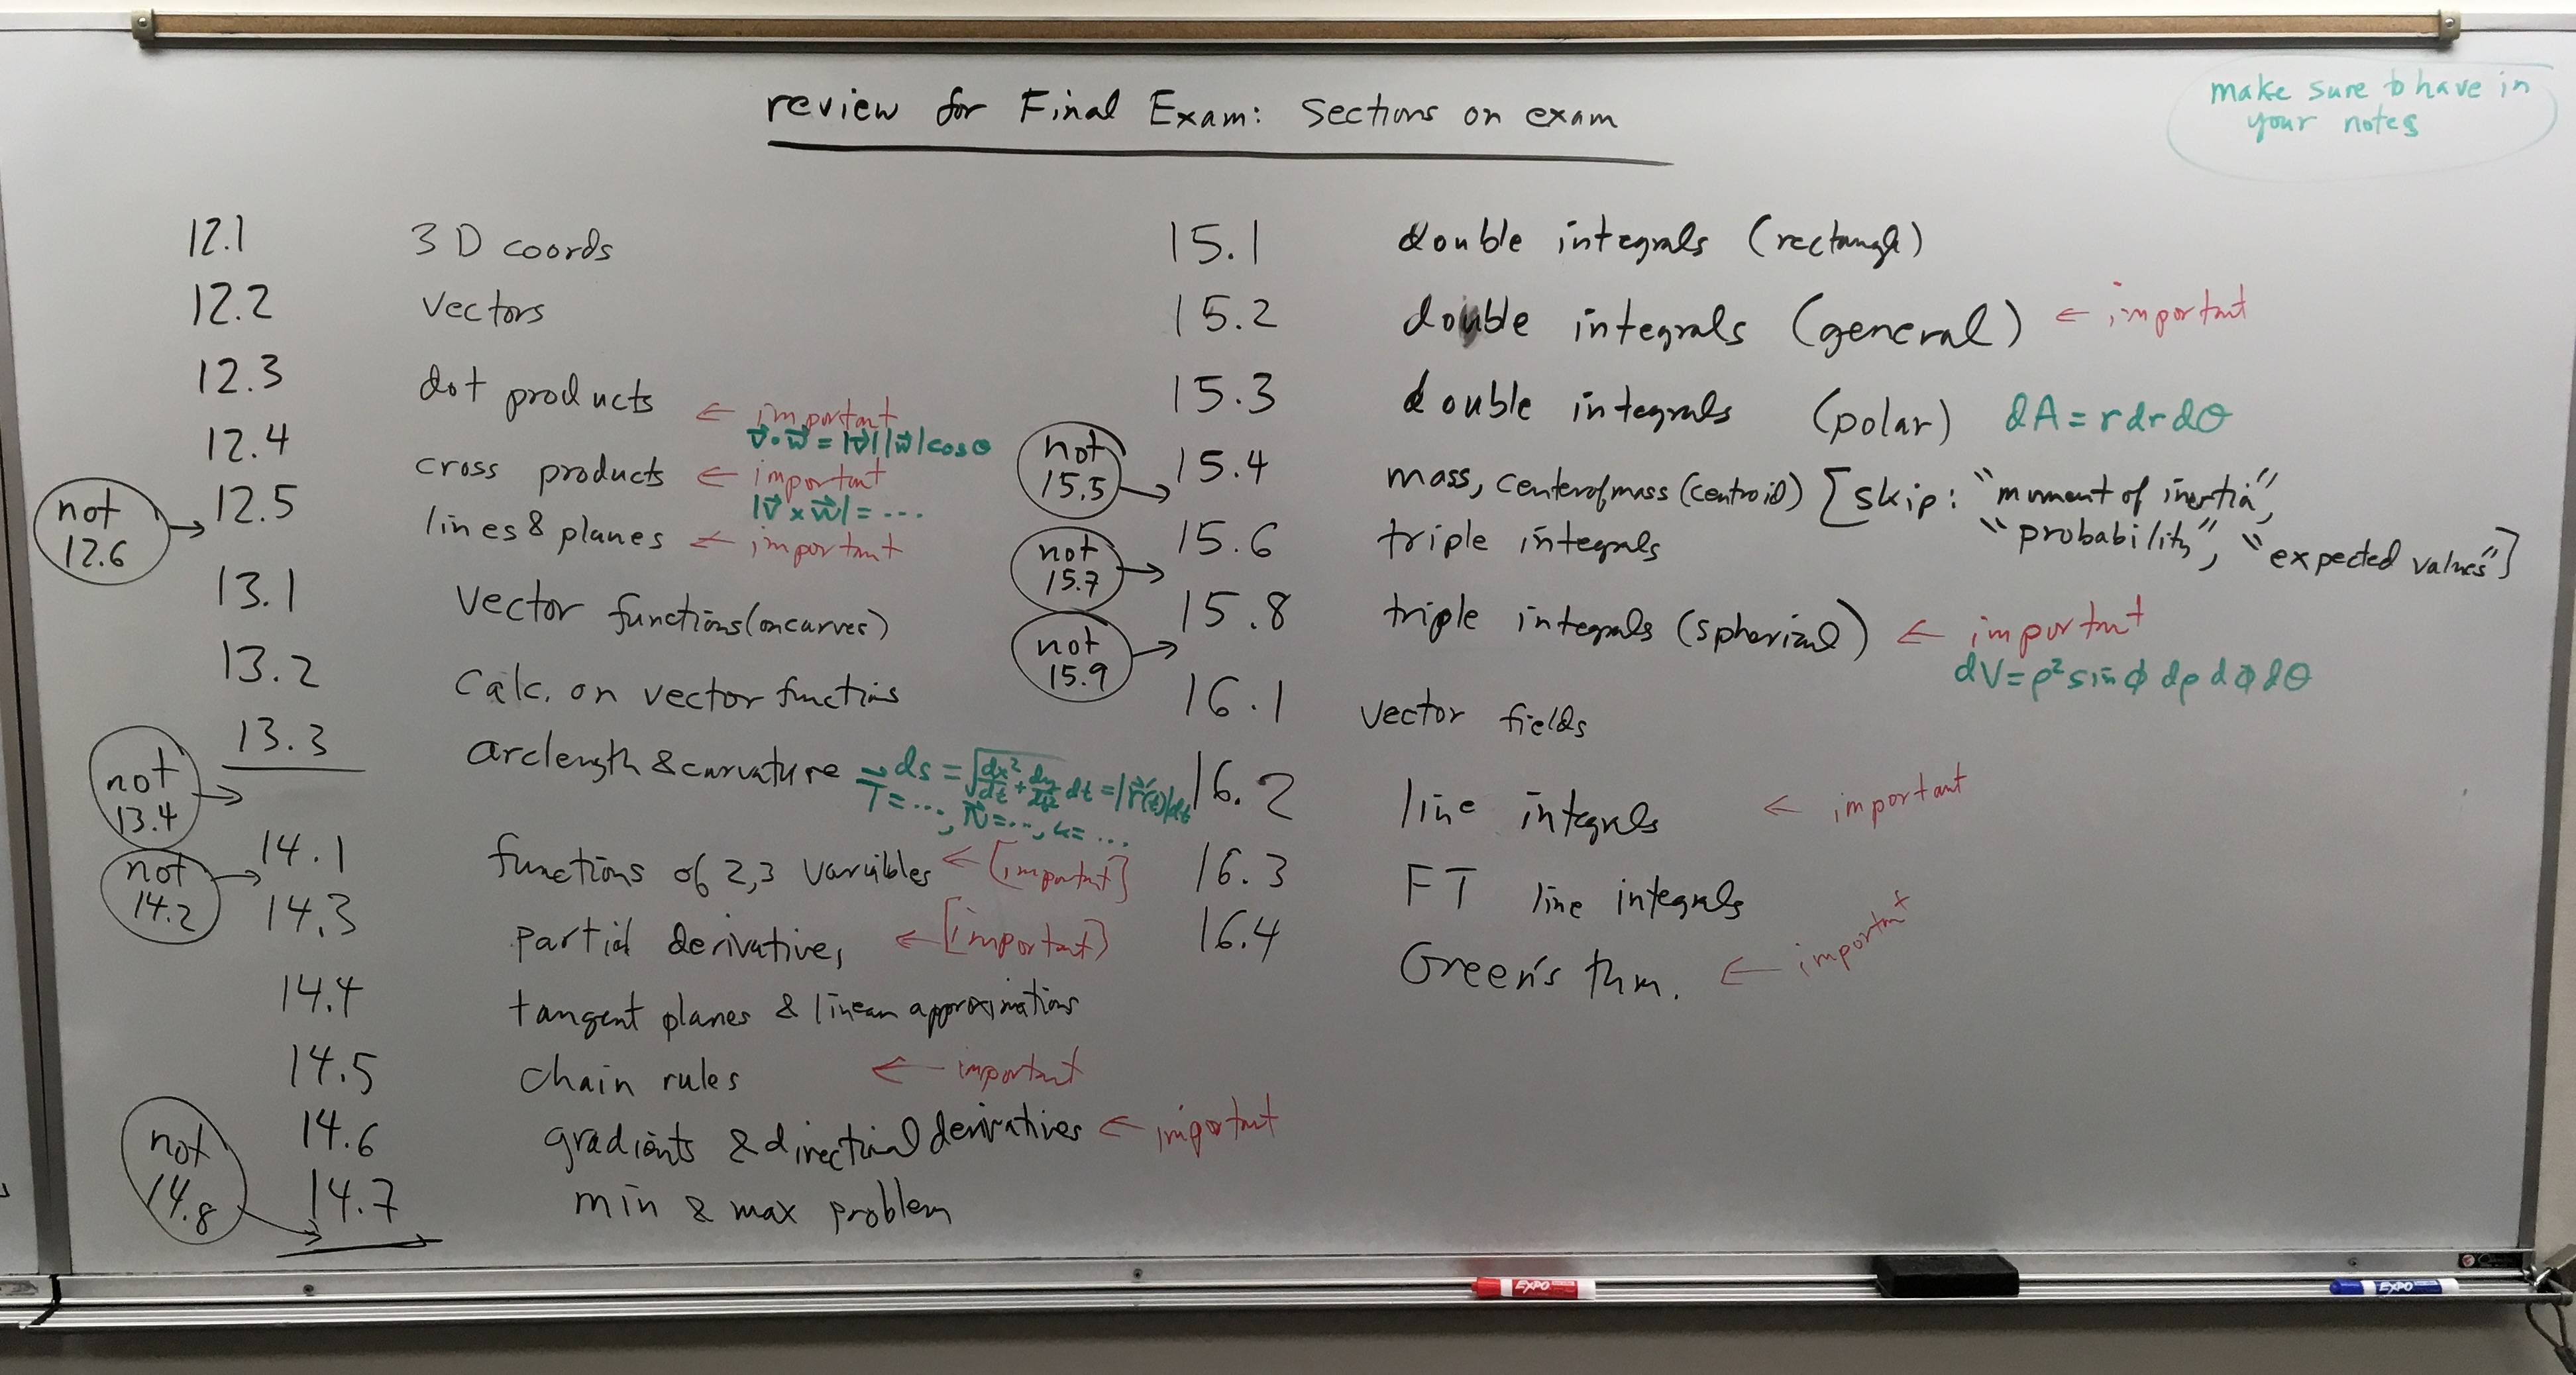 review for Final Exam: Sections on exam
make sure to have in
your notes
12.1 3D coords
12.2 Vectors
12.3 dot products ← important
v⃗·w⃗ = |v⃗||w⃗|cosθ
12.4 cross products ← important
|v⃗ × w⃗| = ...
12.5 lines & planes ← important
not
12.6 →
13.1 Vector functions (on curves)
13.2 Calc. on vector functions
13.3 arclength & curvature ds = √(dx²/dt + dy/dt²) dt = |r⃗'(t)|dt
T⃗ = ..., N⃗ = ..., κ = ...
not
13.4 →
14.1 functions of 2,3 variables ← [important]
not
14.2 →
14.3 partial derivatives ← [important]
14.4 tangent planes & linear approximations
14.5 chain rules ← important
14.6 gradients & directional derivatives ← important
14.7 min & max problem
not
14.8 →
15.1 double integrals (rectangle)
15.2 double integrals (general) ← important
15.3 double integrals (polar) dA = r dr dθ
15.4 mass, center of mass (centroid) [skip: "moment of inertia",
"probability", "expected values"]
not
15.5 →
15.6 triple integrals
not
15.7 →
15.8 triple integrals (spherical) ← important
dV = ρ² sin φ dρ dφ dθ
not
15.9 →
16.1 vector fields
16.2 line integrals ← important
16.3 FT line integrals
16.4 Green's thm. ← important
EXPO
EXPO